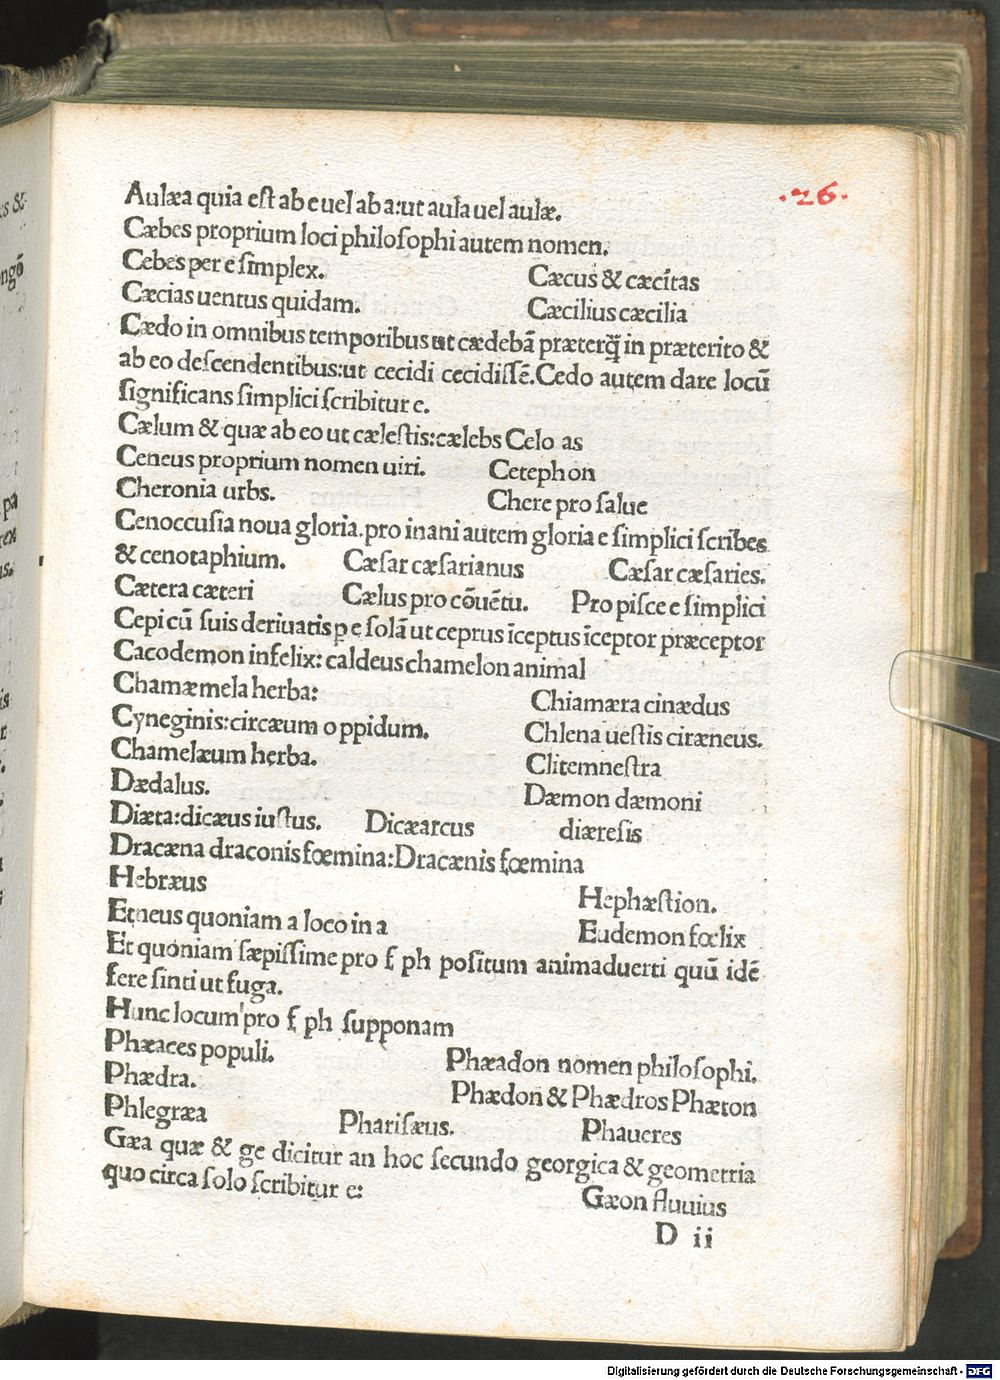 .26.
Aulæa quia eſt ab e uel ab a:ut aula uel aulæ.
Cæbes proprium loci philoſophi autem nomen.
Cebes per e ſimplex. Cæcus & cæcitas
Cæcias uentus quidam. Cæcilius cæcilia
Cædo in omnibus temporibus ut cædebā præterq̄ in præterito &
ab eo deſcendentibus:ut cecidi cecidiſſē.Cedo autem dare locū
ſignificans ſimplici ſcribitur e.
Cælum & quæ ab eo ut cæleſtis:cælebs Celo as
Ceneus proprium nomen uiri. Cetephon
Cheronia urbs. Chere pro ſalue
Cenoccuſia noua gloria.pro inani autem gloria e ſimplici ſcribes
& cenotaphium. Cæſar cæſarianus Cæſar cæſaries.
Cætera cæteri Cælus pro cōuētu. Pro piſce e ſimplici
Cepi cū ſuis deriuatis p e ſolā ut ceptus īceptus īceptor præceptor
Cacodemon infelix: caldeus chamelon animal
Chamæmela herba: Chiamæra cinædus
Cyneginis:circæum oppidum. Chlena ueſtis ciræneus.
Chamelæum herba. Clitemneſtra
Dædalus. Dæmon dæmoni
Diæta:dicæus iuſtus. Dicæarcus diæreſis
Dracæna draconis fœmina:Dracænis fœmina
Hebræus Hephæſtion.
Etneus quoniam a loco in a Eudemon fœlix
Et quoniam ſæpiſſime pro f ph poſitum animaduerti quū idē
fere ſint:ut fuga.
Hunc locum pro f ph ſupponam
Phæaces populi. Phæadon nomen philoſophi.
Phædra. Phædon & Phædros Phæton
Phlegræa Phariſæus. Phaueres
Gæa quæ & ge dicitur an hoc ſecundo georgica & geometria
quo circa ſolo ſcribitur e: Gæon fluuius
D ii
Digitalisierung gefördert durch die Deutsche Forschungsgemeinschaft - DFG